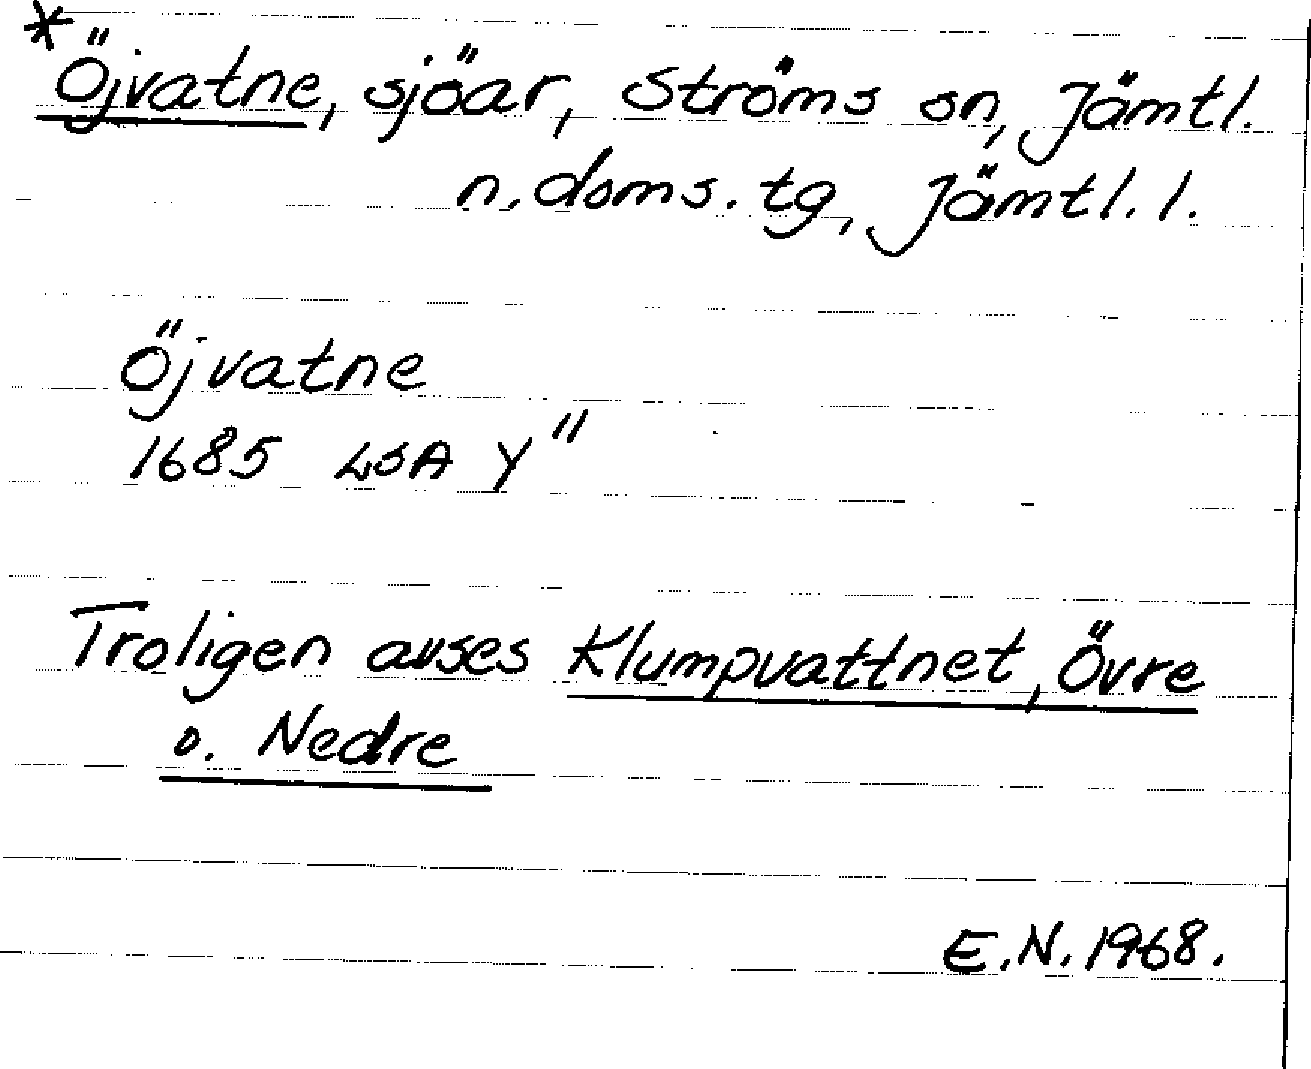 *Öjvatne, sjöar, Ströms sn, Jämtl.
n. doms. tg, Jämtl. l.
Öjvatne
1685 LSA Y"
Troligen avses Klumpvattnet, Övre
o. Nedre
E.N. 1968.